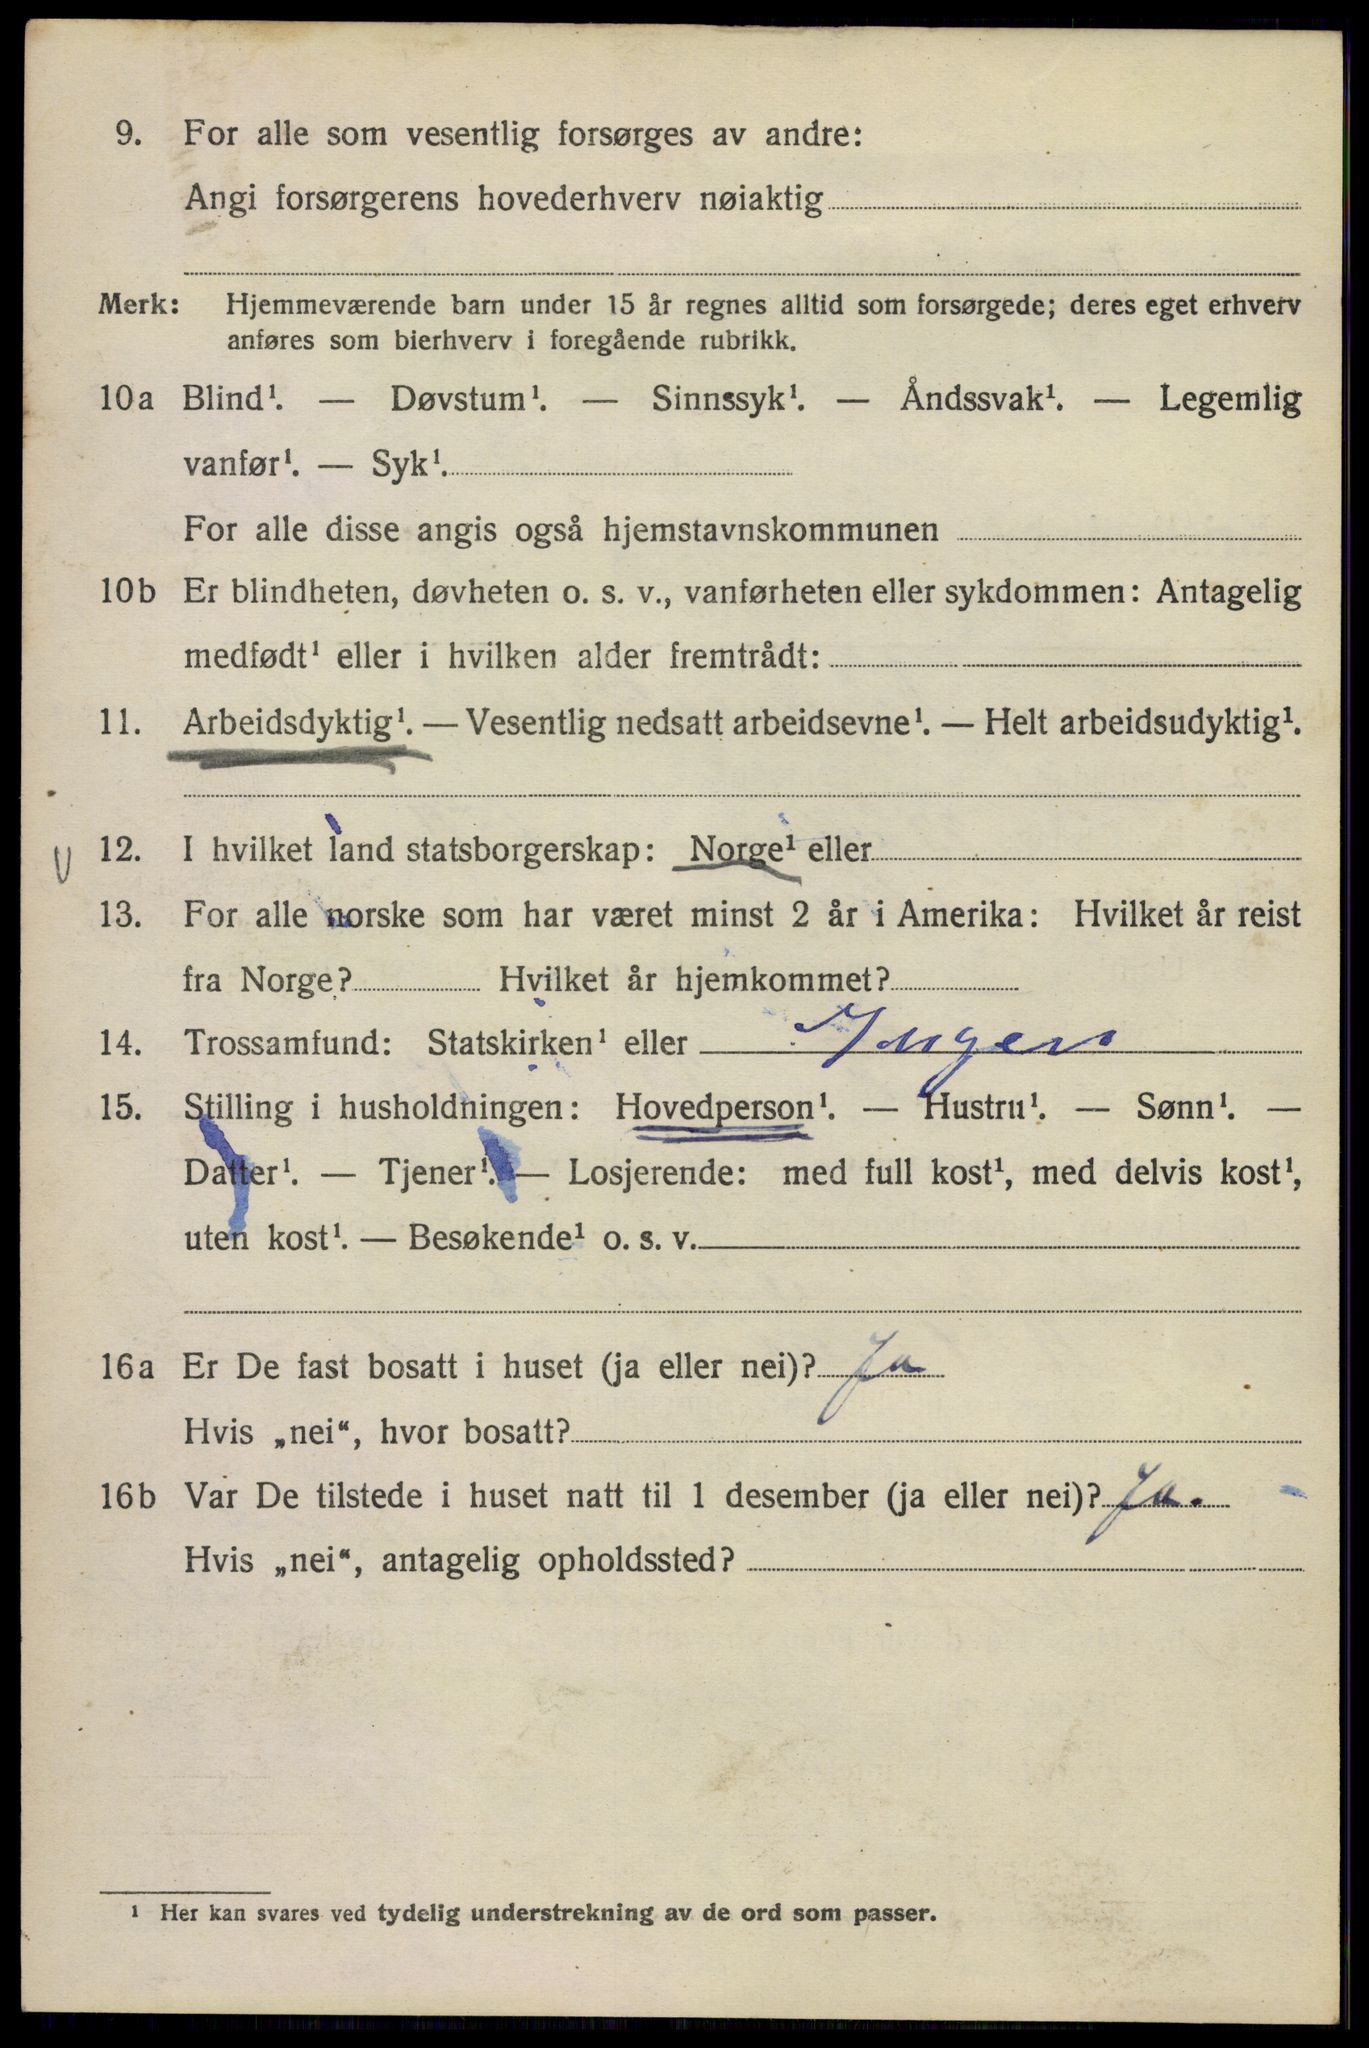 9. For alle som vesentlig forsørges av andre:
Angi forsørgerens hovederhverv nøiaktig
Merk: Hjemmeværende barn under 15 år regnes alltid som forsørgede; deres eget erhverv
anføres som bierhverv i foregående rubrikk.
10a Blind¹. — Døvstum¹. — Sinnssyk¹. — Åndssvak¹. — Legemlig
vanfør¹. — Syk¹.
For alle disse angis også hjemstavnskommunen
10b Er blindheten, døvheten o. s. v., vanførheten eller sykdommen: Antagelig
medfødt¹ eller i hvilken alder fremtrådt:
11. Arbeidsdyktig¹. — Vesentlig nedsatt arbeidsevne¹. — Helt arbeidsudyktig¹.
12. I hvilket land statsborgerskap: Norge¹ eller
13. For alle norske som har været minst 2 år i Amerika: Hvilket år reist
fra Norge? Hvilket år hjemkommet?
14. Trossamfund: Statskirken¹ eller Ingen
15. Stilling i husholdningen: Hovedperson¹. — Hustru¹. — Sønn¹. —
Datter¹. — Tjener¹. — Losjerende: med full kost¹, med delvis kost¹,
uten kost¹. — Besøkende¹ o. s. v.
16a Er De fast bosatt i huset (ja eller nei)? Ja
Hvis „nei“, hvor bosatt?
16b Var De tilstede i huset natt til 1 desember (ja eller nei)? Ja.
Hvis „nei“, antagelig opholdssted?
¹ Her kan svares ved tydelig understrekning av de ord som passer.